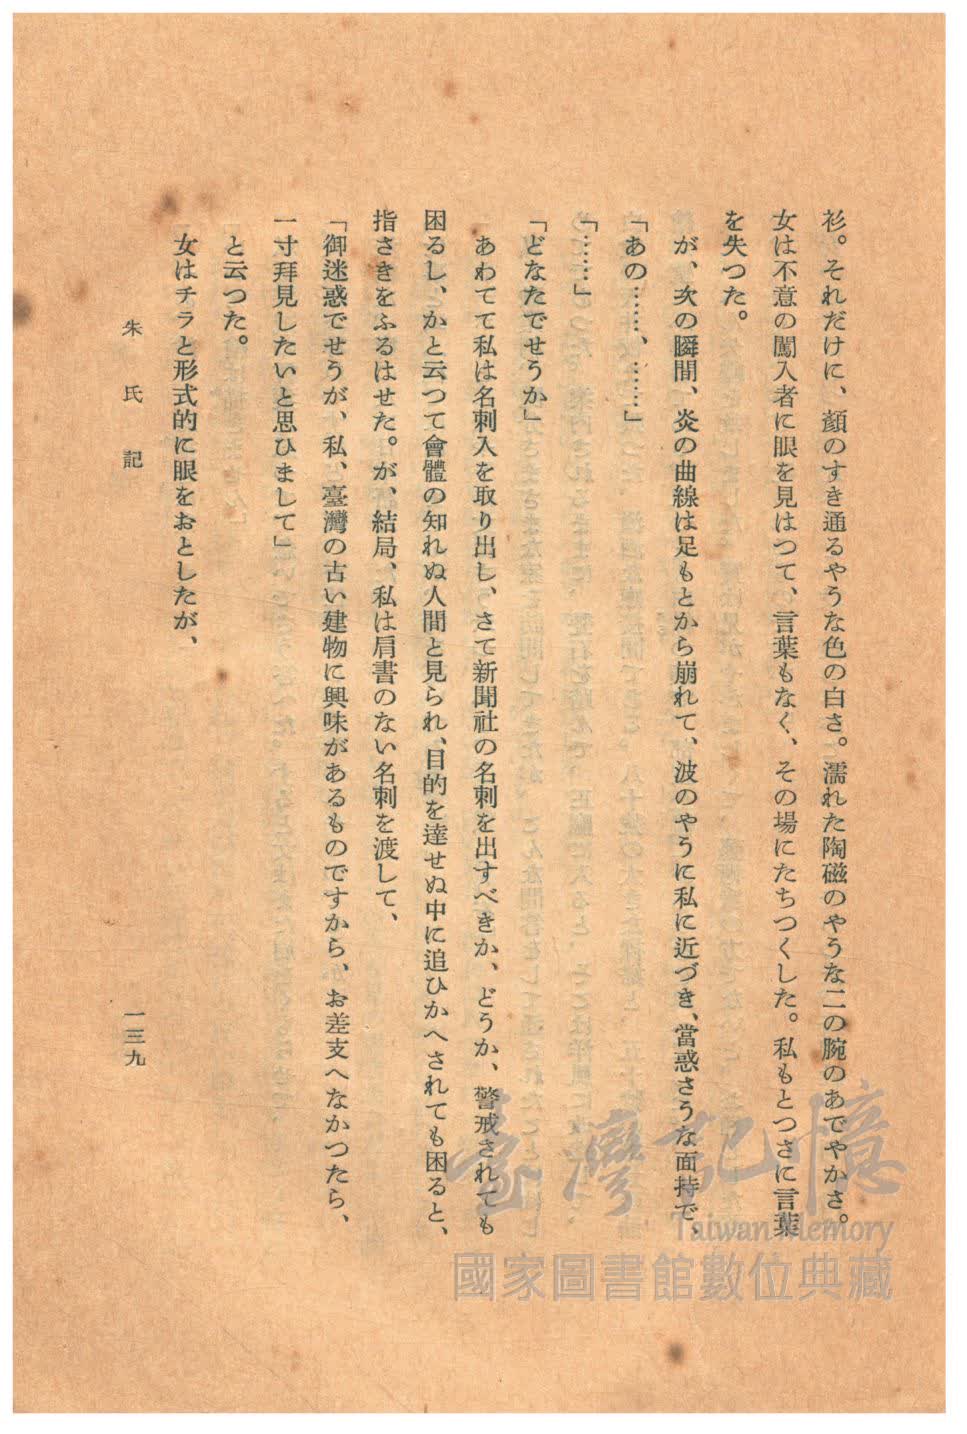 衫。それだけに、顏のすき通るやうな色の白さ。濡れた陶磁のやうな二の腕のあでやかさ。
女は不意の闖入者に眼を見はつて、言葉もなく、その場にたちつくした。私もとつさに言葉
を失つた。
が、次の瞬間、炎の曲線は足もとから崩れて、波のやうに私に近づき、當惑さうな面持で、
「あの……、……」
「……」
「どなたでせうか」
あわてて私は名刺入を取り出し、さて新聞社の名刺を出すべきか、どうか、警戒されても
困るし、かと云つて會體の知れぬ人間と見られ、目的を達せぬ中に追ひかへされても困ると、
指さきをふるはせた。が、結局、私は肩書のない名刺を渡して、
「御迷惑でせうが、私、臺灣の古い建物に興味があるものですから、お差支へなかつたら、
一寸拜見したいと思ひまして」
と云つた。
女はチラと形式的に眼をおとしたが、
朱氏記
一三九
臺灣記憶
Taiwan Memory
國家圖書館數位典藏